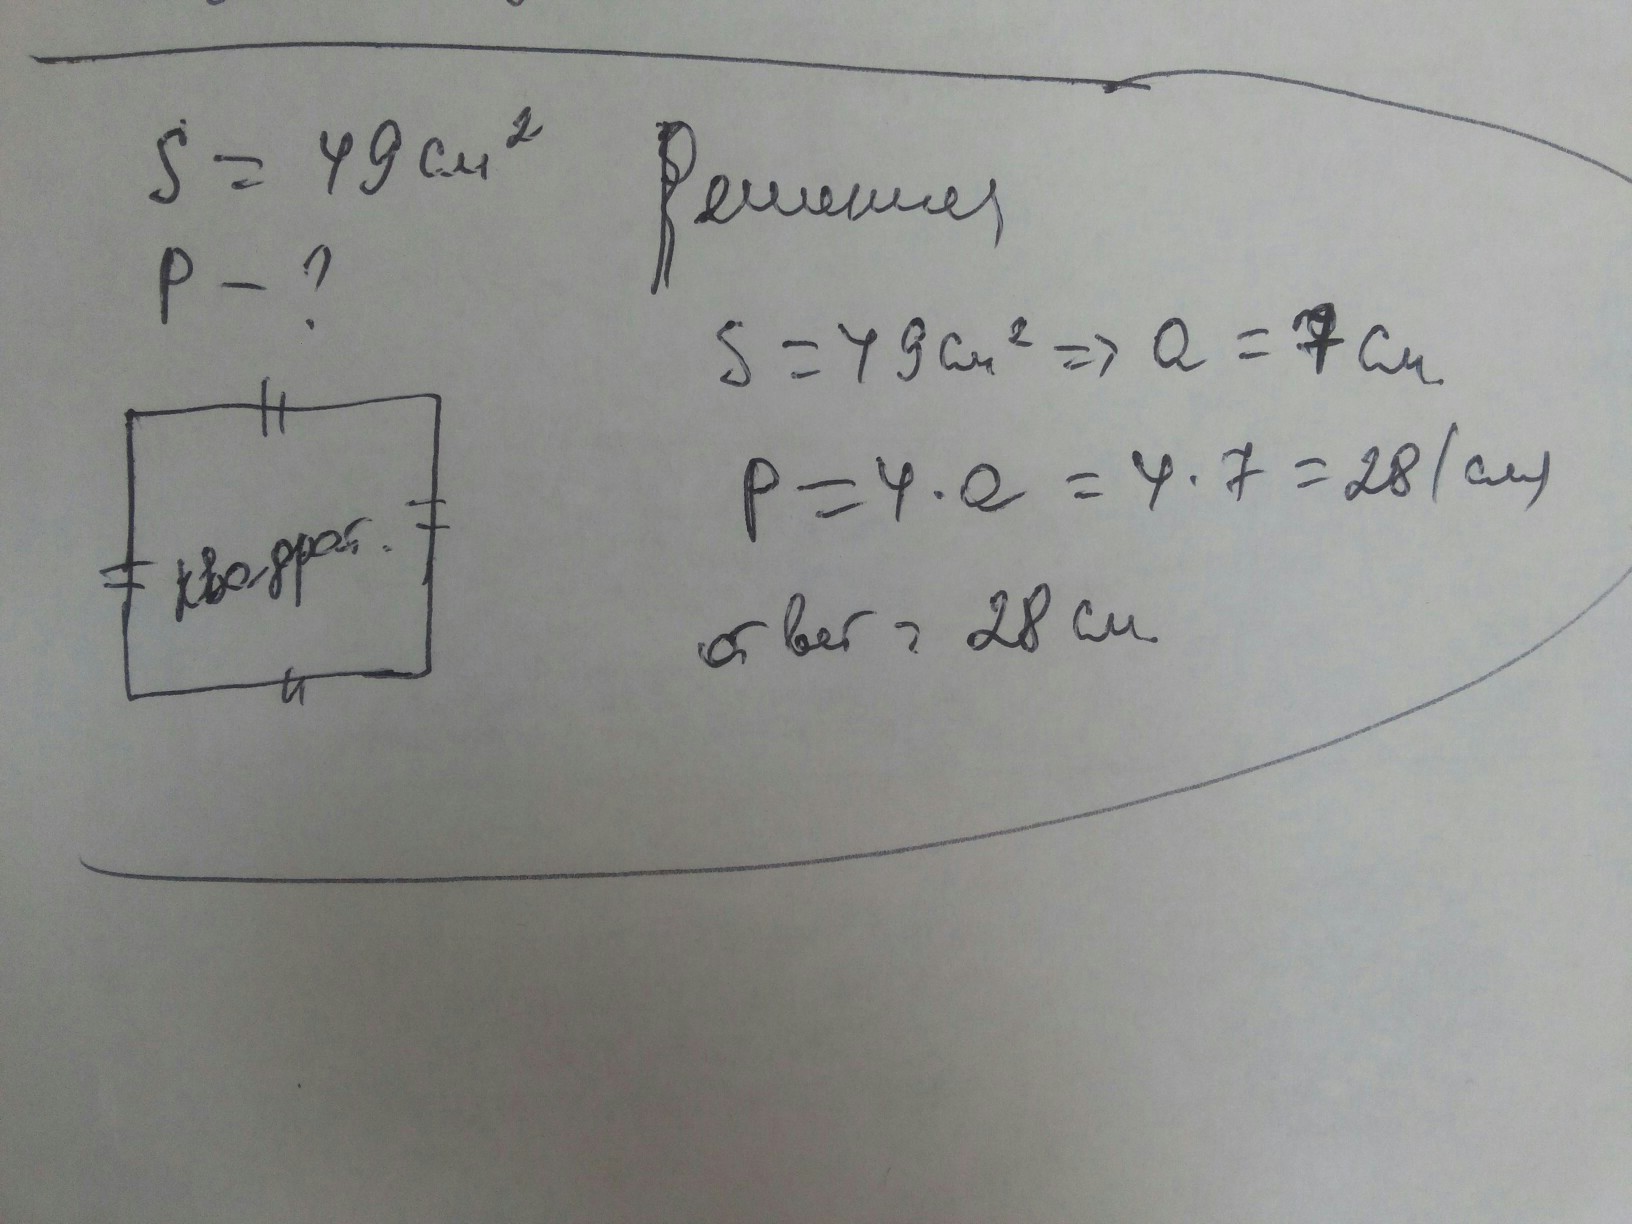 S = 49 см²
P - ?
квадрат.
Решения
S = 49 см² => a = 7 см.
P = 4 · a = 4 · 7 = 28 (см)
ответ : 28 см